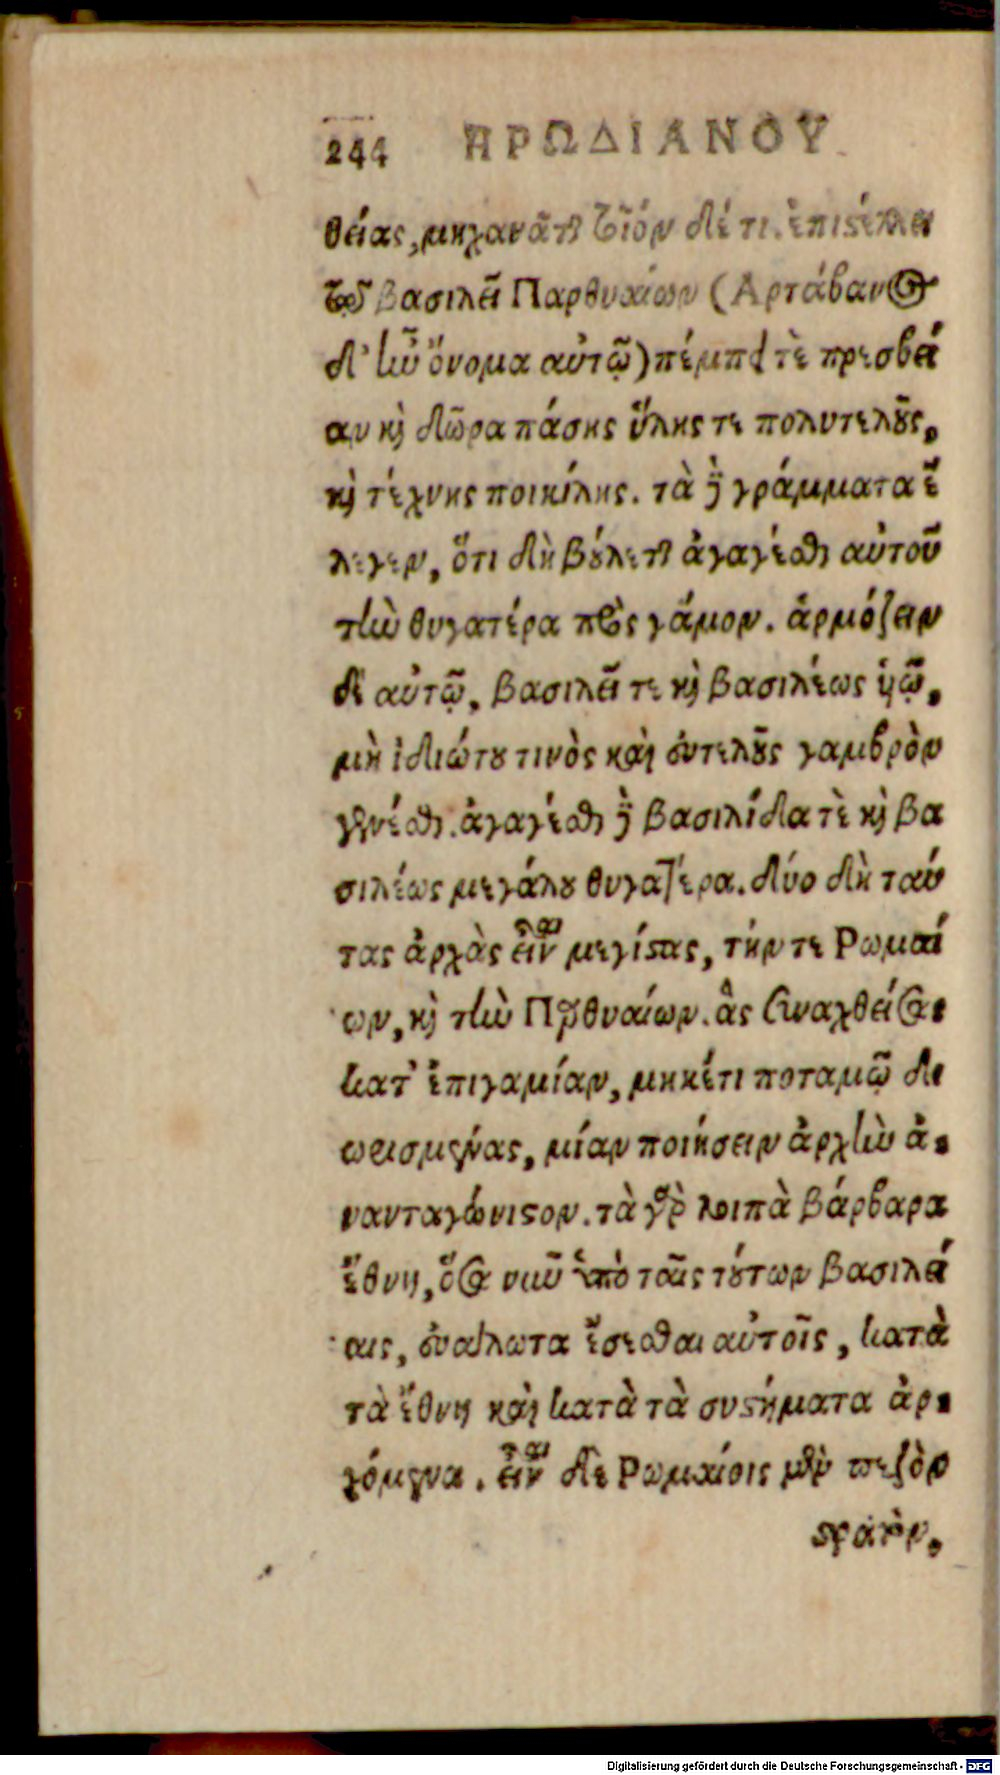 244 ΗΡΩΔΙΑΝΟΥ
θείας, μηχανᾶται τοιόν δέ τι. ἐπιστέλλει
τῷ βασιλεῖ Παρθυαίων (Αρτάβανος
δ' ἦν ὄνομα αὐτῷ) πέμπει τὲ πρεσβεί
αν καὶ δῶρα πάσης ὕλης τε πολυτελοῦς,
καὶ τέχνης ποικίλης. τὰ δὲ γράμματα ἔ
λεγεν, ὅτι δὴ βούλεται ἀγαγέσθαι αὐτοῦ
τὴν θυγατέρα πρὸς γάμον. ἁρμόζειν
δὲ αὐτῷ, βασιλεῖ τε καὶ βασιλέως ὑῷ,
μὴ ἰδιώτου τινὸς καὶ εὐτελοῦς γαμβρὸν
γενέσθαι. ἀγαγέσθαι δὲ βασιλίδα τὲ καὶ βα
σιλέως μεγάλου θυγατέρα. δύο δὴ ταύ
τας ἀρχὰς εἶναι μεγίστας, τήν τε Ρωμαί
ων, καὶ τὴν Παρθυαίων. ἃς συναχθείσας
κατ' ἐπιγαμίαν, μηκέτι ποταμῷ δι
ωρισμένας, μίαν ποιήσειν ἀρχὴν ἀ-
νανταγώνιστον. τὰ γὰρ λοιπὰ βάρβαρα
ἔθνη, ὅσα νῦν ὑπὸ ταῖς τούτων βασιλεί
αις, εὐάλωτα ἔσεσθαι αὐτοῖς, κατὰ
τὰ ἔθνη καὶ κατὰ τὰ συστήματα ἀρ-
χόμενα. εἶναι δὲ Ρωμαίοις μὲν πεζὸν
στρατὸν,
Digitalisierung gefördert durch die Deutsche Forschungsgemeinschaft - DFG